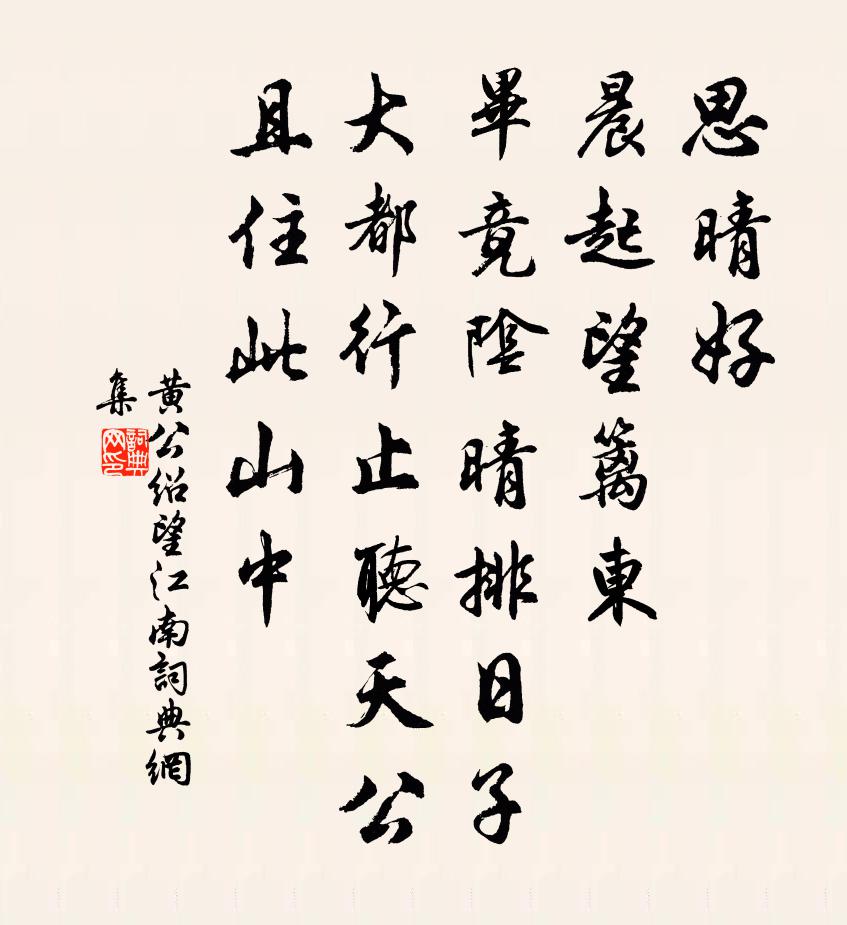 思晴好
晨起望篱東
畢竟陰晴排日子
大都行止聽天公
且住此山中
黄公绍望江南詞典網
集
詞典
网印